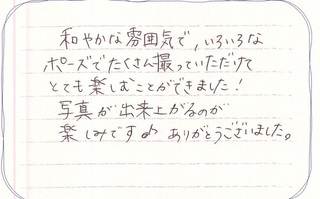 和やかな雰囲気で，いろいろな
ポーズでたくさん撮っていただけて
とても楽しむことができました！
写真が出来上がるのが
楽しみです♪ ありがとうございました。